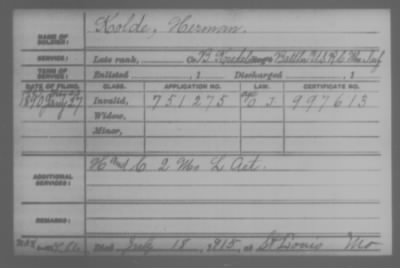 Kolde, Herman.
NAME OF SOLDIER:
SERVICE: Late rank, Co. B, Reg't Battln U.S.R.C. Mo. Inf
TERM OF SERVICE: Enlisted , 1 Discharged , 1
DATE OF FILING. CLASS. APPLICATION NO. LAW. CERTIFICATE NO.
1890 July 27 Invalid, 751275 J 997613
Widow,
Minor,
ADDITIONAL SERVICES: H and C 2 Mo L Art.
REMARKS:
Died July 18, 1915, at St Louis Mo